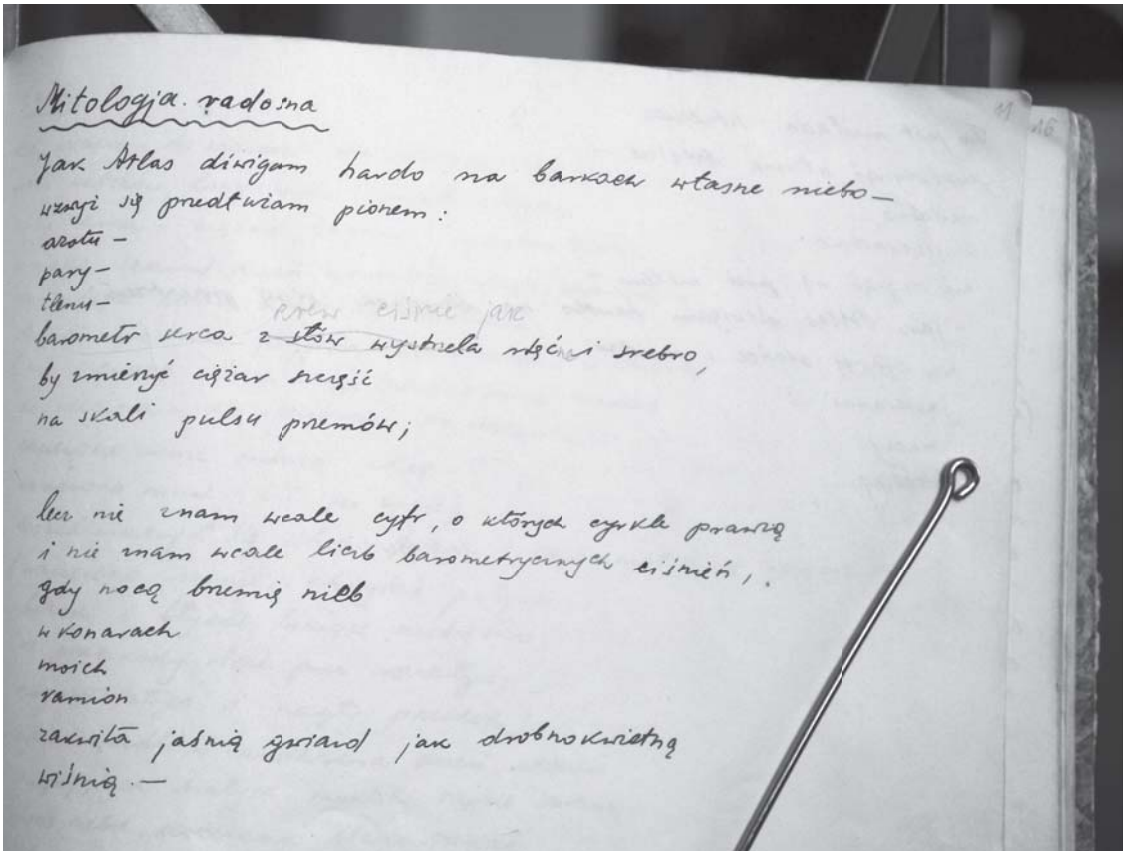 11 16
Mitologja radosna
Jak Atlas dźwigam hardo na barkach własne niebo —
wzwyż się przedłużam pionem :
azotu —
pary —
tlenu —
krew ciśnie jak
barometr serca z słów wystrzela rtęć i srebro,
by zmierzyć ciężar szczęść
na skali pulsu przemów;
lecz nie znam wcale cyfr, o których cyrkle prawią
i nie znam wcale liczb barometrycznych ciśnień,
gdy nocą brzemię nieb
w konarach
moich
ramion
zakwita jaśnią gwiazd jak drobnokwietną
wiśnią. —